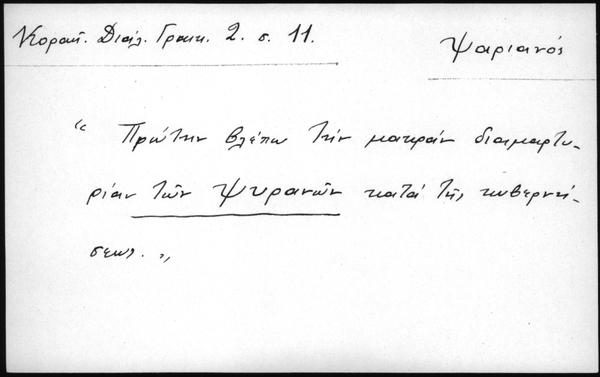 Κοραῆ. Διάλ. Γραικ. 2. σ. 11.
Ψαριανός
“ Πρώτην βλέπω τὴν μακρὰν διαμαρτυ-
ρίαν τῶν Ψυρανῶν κατὰ τῆς κυβερνή-
σεως. „